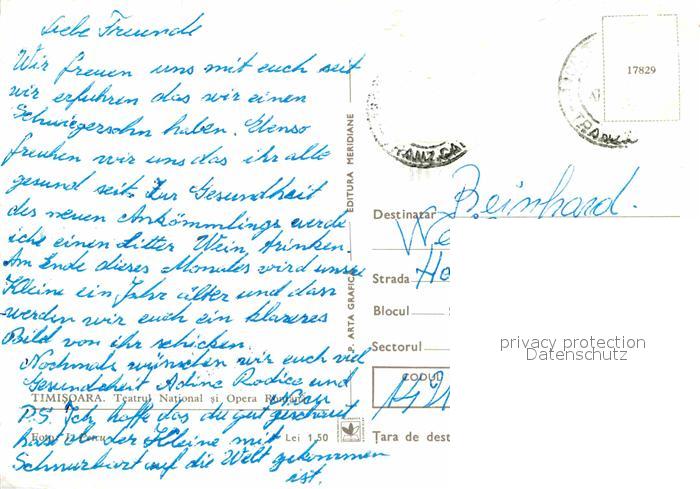 Liebe Freunde
Wir freuen uns mit euch seit
wir erfuhren das wir einen
Schwiegersohn haben. Ebenso
freuhen wir uns das ihr alle
gesund seit. Zur Gesundheit
des neuen Ankömmlings werde
iche einen Litter Wein trinken.
Am Ende dieses Monates wird unsere
Kleine ein Jahr älter und dan
werden wir euch ein klareres
Bild von ihr schicken.
Nochmals wünschen wir euch viel
Gesundeheit Adine Rodica und
TIMIŞOARA. Teatrul Naţional şi Opera Română
P.S. Ich hoffe das du gut geschaut
hast ob der Kleine mit
Schnurbart auf die Welt gekommen
ist.
Foto:
Lei 1,50
P. ARTA GRAFICĂ
EDITURA MERIDIANE
17829
Destinatar Beinhard.
We
Strada Ho
Blocul
Sectorul
CODUL
Ţara de dest
privacy protection
Datenschutz